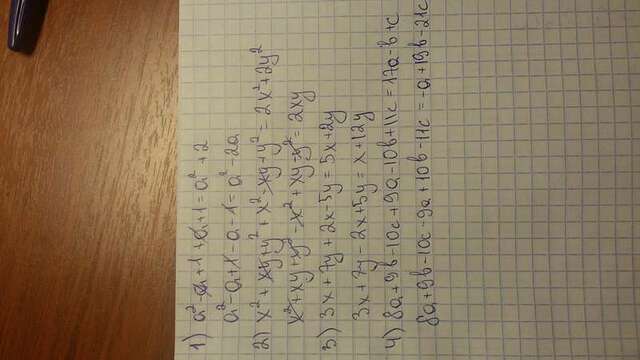 1) a² - a + 1 + a + 1 = a² + 2
a² - a + 1 - a - 1 = a² - 2a
2) x² + xy + y² + x² - xy + y² = 2x² + 2y²
x² + xy + y² - x² + xy - y² = 2xy
3) 3x + 7y + 2x - 5y = 5x + 2y
3x + 7y - 2x + 5y = x + 12y
4) 8a + 9b - 10c + 9a - 10b + 11c = 17a - b + c
8a + 9b - 10c - 9a + 10b - 11c = -a + 19b - 21c